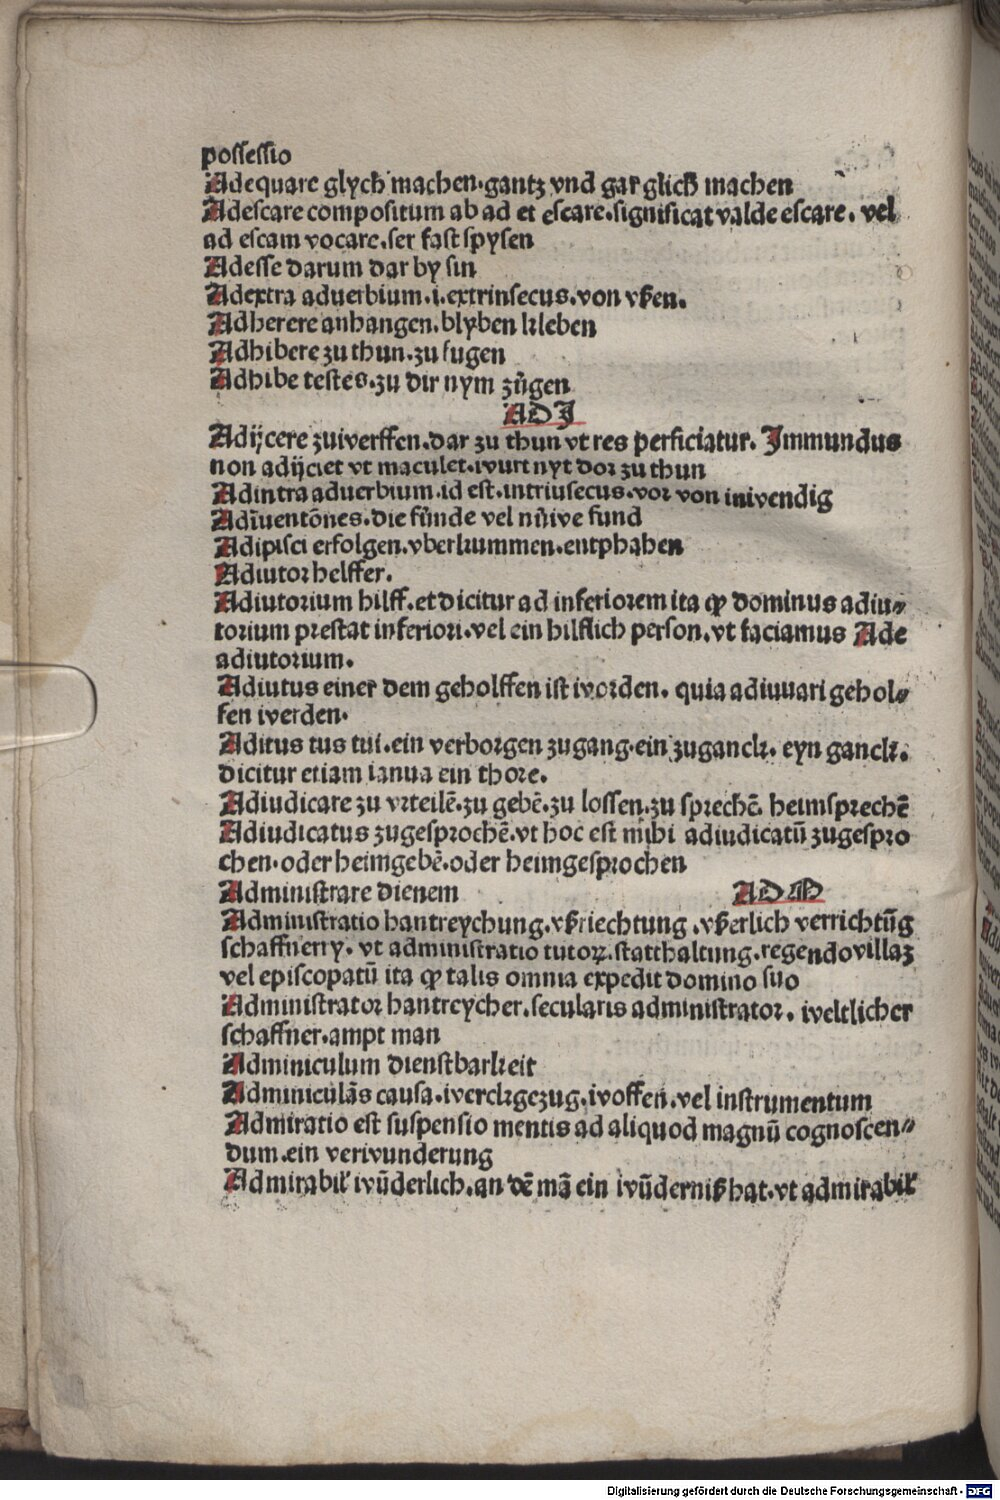 possessio
Adequare glych machen.gantz vnd gar glich machen
Adescare compositum ab ad et escare.significat valde escare. vel
ad escam vocare.ser fast spysen
Adesse darum dar by sin
Adextra aduerbium.i.extrinsecus.von vßen.
Adherere anhangen.blyben kleben
Adhibere zu thun.zu fugen
Adhibe testes.zu dir nym zůgen
ADJ
Adijcere zuwerffen.dar zu thun vt res perficiatur. Immundus
non adijciet vt maculet.wurt nyt dor zu thun
Adintra aduerbium.id est.intriusecus.vor von inwendig
Adīuentōnes.die fůnde vel nůwe fund
Adipisci erfolgen.vberkummen.entphahen
Adiutor helffer.
Adiutorium hilff.et dicitur ad inferiorem ita ꝙ dominus adiu⸗
torium prestat inferiori.vel ein hilflich person.vt faciamus Ade
adiutorium.
Adiutus einer dem geholffen ist worden. quia adiuuari gehol⸗
fen werden.
Aditus tus tui.ein verborgen zugang.ein zuganck. eyn ganck.
dicitur etiam ianua ein thore.
Adiudicare zu vrteilē.zu gebē.zu lossen.zu sprechē. heimsprechē
Adiudicatus zugesprochē.vt hoc est mihi adiudicatū zugespro
chen.oder heimgebē.oder heimgesprochen
Administrare dienem ADM
Administratio hantreychung.vßriechtung .vßerlich verrichtūg
schaffnerry. vt administratio tutoꝝ.statthaltung.regendo villaz
vel episcopatū ita ꝙ talis omnia expedit domino suo
Administrator hantreycher.secularis administrator. weltlicher
schaffner.ampt man
Adminiculum dienstbarkeit
Adminiculās causa.werckgezug.woffen.vel instrumentum
Admiratio est suspensio mentis ad aliquod magnū cognoscen⸗
dum.ein verwunderung
Admirabil' wūderlich.an dē mā ein wūderniß hat.vt admirabil'
Digitalisierung gefördert durch die Deutsche Forschungsgemeinschaft - DFG